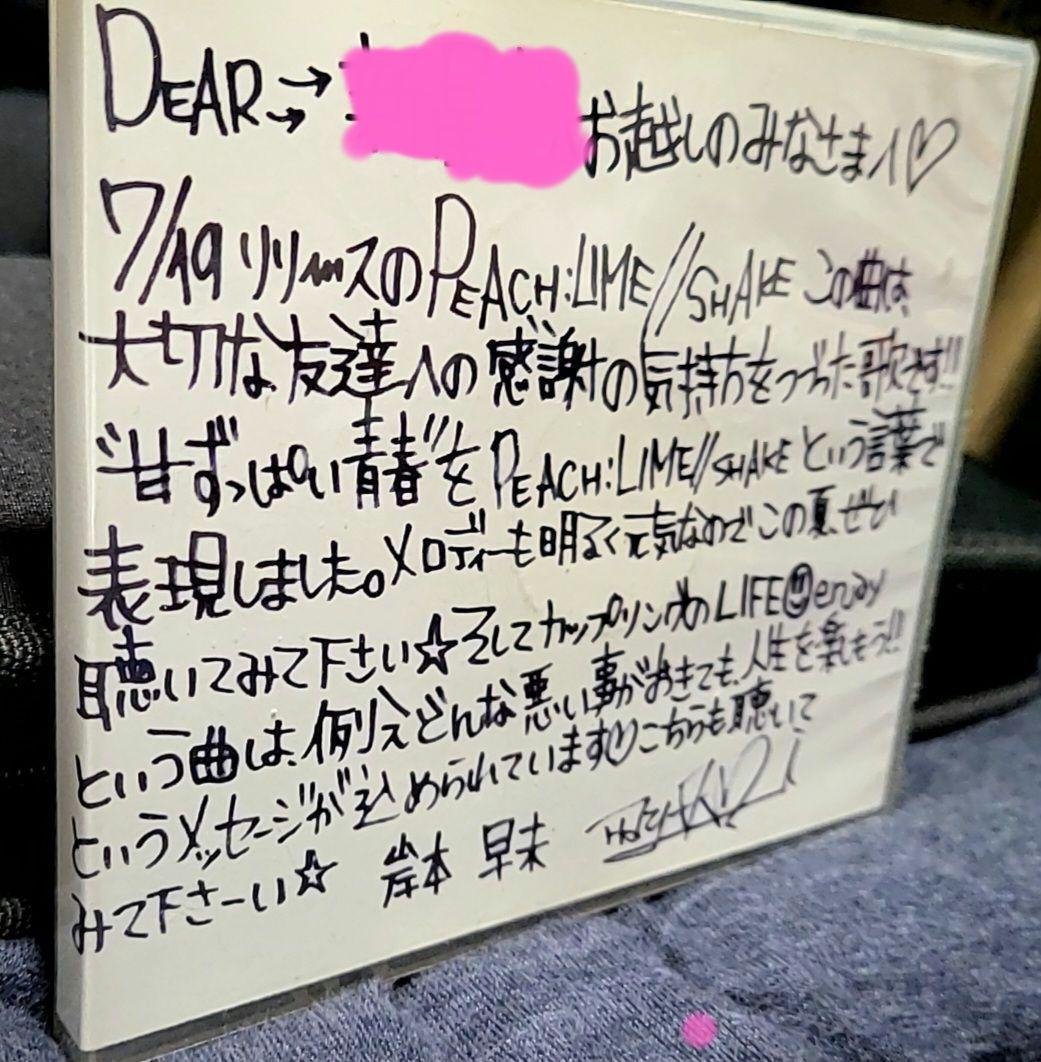 DEAR→→ お越しのみなさまへ♡
7/19 リリースのPEACH:LIME//SHAKE この曲は、
大切な友達への感謝の気持ちをつづった歌です!!
"甘ずっぱい青春"をPEACH:LIME//SHAKEという言葉で
表現しました。メロディーも明るく元気なのでこの夏、ぜひ
聴いてみて下さい☆そしてカップリングのLIFE enjoy
という曲は、例えどんな悪い事がおきても、人生を楽しもう!!
というメッセージが込められています♡こちらも聴いて
みて下さーい☆ 岸本 早未